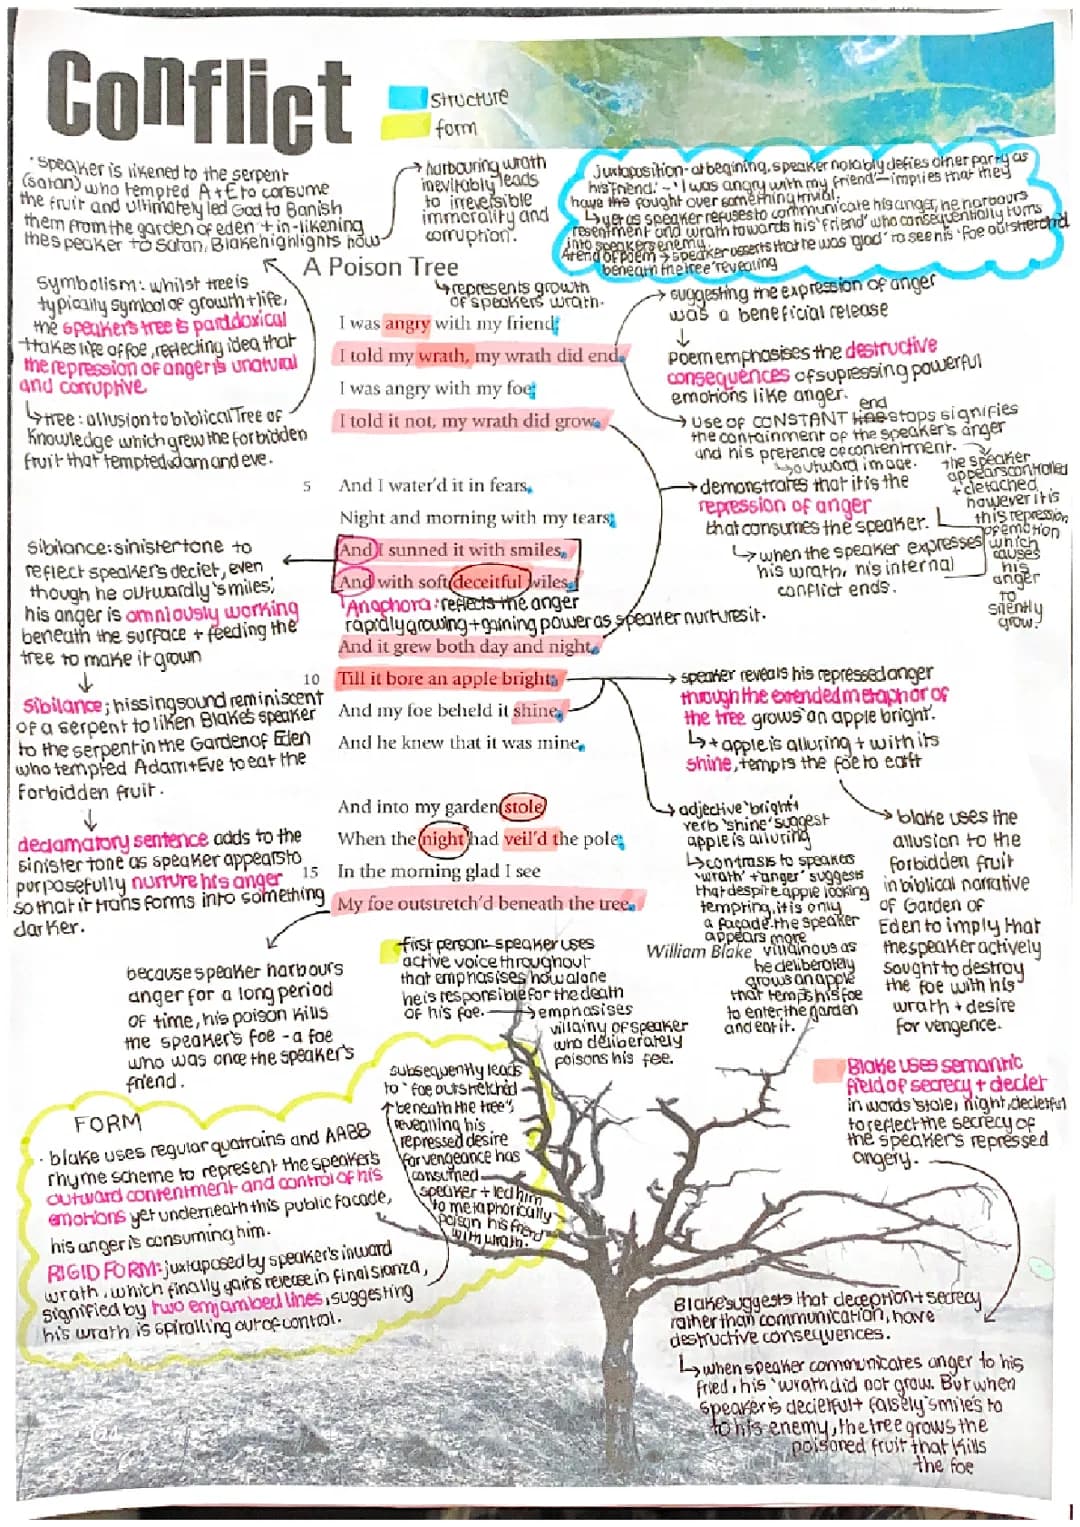 Conflict
Structure
form
'Speaker is likened to the serpent
(satan) who tempted A+E to consume
the fruit and ultimately led God to Banish
them from the garden of eden + in-likening
the speaker to Satan, Blake highlights how
harbouring wrath
inevitably leads
to irreversible
immorality and
corruption.
juxtaposition- at begining, speaker notably defies other party as
his 'friend.' - 'I was angry with my friend' - implies that they
have the fought over something trivial.
↳ yet as speaker refuses to communicate his anger, he harbours
resentment and wrath towards his 'friend' who consequentially turns
into speakers enemy.
At end of poem → speaker asserts that he was 'glad' to see his 'foe outstretch'd
beneath the tree' revealing
A Poison Tree
↳ represents growth
of speakers wrath.
Symbolism: whilst tree is
typically symbol of growth + life,
the speaker's tree is paradoxical
+ takes life of foe, reflecting idea that
the repression of anger is unatural
and corruptive.
↳ tree: allusion to biblical Tree of
Knowledge which grew the forbidden
fruit that tempted adam and eve.
I was angry with my friend;
I told my wrath, my wrath did end.
I was angry with my foe;
I told it not, my wrath did grow.
5 And I water'd it in fears,
Night and morning with my tears;
And I sunned it with smiles,
And with soft deceitful wiles.
'Anaphora: reflects the anger
rapidly growing + gaining power as speaker nurtures it.
And it grew both day and night,
10 Till it bore an apple bright;
And my foe beheld it shine,
And he knew that it was mine,
And into my garden stole
When the night had veil'd the pole;
15 In the morning glad I see
My foe outstretch'd beneath the tree.
William Blake
suggesting the expression of anger
was a beneficial release
↓
Poem emphasises the destructive
consequences of supressing powerful
emotions like anger.
end
use of CONSTANT stops signifies
the containment of the speaker's anger
and his pretence of contentment.
↳ outward image.
the speaker
appears controlled
+ detached
however it is
this repression
of emotion
which
causes
his
anger
to
silently
grow.
demonstrates that it is the
repression of anger
that consumes the speaker.
↳ when the speaker expresses
his wrath, his internal
conflict ends.
Sibilance: sinister tone to
reflect speaker's deciet, even
though he outwardly 'smiles',
his anger is omniously working
beneath the surface + feeding the
tree to make it grown
↓
Sibilance; hissing sound reminiscent
of a serpent to liken Blake's speaker
to the serpent in the Garden of Eden
who tempted Adam + Eve to eat the
Forbidden fruit.
↓
declamatory sentence adds to the
sinister tone as speaker appears to
purposefully nurture his anger
so that it transforms into something
darker.
speaker reveals his repressed anger
through the extended metaphor of
the tree grows 'an apple bright'.
↳ + apple is alluring + with its
shine, tempts the foe to eat it
adjective 'bright' +
verb 'shine' suggest
apple is alluring
↳ contrasts to speakers
'wrath' + 'anger' suggests
that despite apple looking
tempting, it is only
a façade. the speaker
appears more
villainous as
he deliberately
grows an apple
that tempts his foe
to enter the garden
and eat it.
blake uses the
allusion to the
forbidden fruit
in biblical narrative
of Garden of
Eden to imply that
the speaker actively
sought to destroy
the foe with his
wrath + desire
for vengence.
because speaker harbours
anger for a long period
of time, his poison kills
the speaker's foe - a foe
who was once the speaker's
friend.
first person:- speaker uses
active voice throughout
that emphasises how alone
he is responsible for the death
of his foe. → emphasises
villainy of speaker
who deliberately
poisons his foe.
FORM
· blake uses regular quatrains and AABB
rhyme scheme to represent the speaker's
outward contentment and control of his
emotions yet underneath this public facade,
his anger is consuming him.
RIGID FORM: juxtaposed by speaker's inward
wrath, which finally gains release in final stanza,
signified by two enjambed lines, suggesting
his wrath is spiralling out of control.
subsequently leads
to 'foe outstretched
beneath the tree',
revealing his
repressed desire
for vengeance has
consumed
speaker + led him
to metaphorically
poison his friend
with wrath.
Blake uses semantic
field of secrecy + deciet
in words 'stole, night, deceitful
to reflect the secrecy of
the speaker's repressed
angery.
Blake suggests that deception + secrecy
rather than communication, have
destructive consequences.
↳ when speaker communicates anger to his
fried, his 'wrath did not grow. But when
speaker is decietful + falsely 'smiles to
to his enemy, the tree grows the
poisoned fruit that kills
the foe